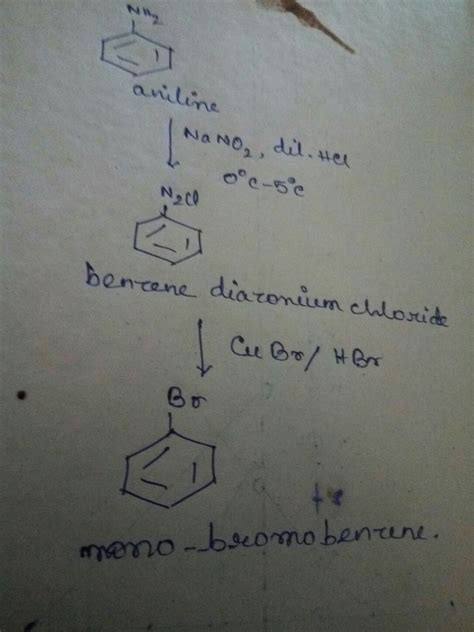 NH2
aniline
NaNO2, dil. HCl
0°C-5°C
N2Cl
benzene diazonium chloride
CuBr/ HBr
Br
mono-bromobenzene.